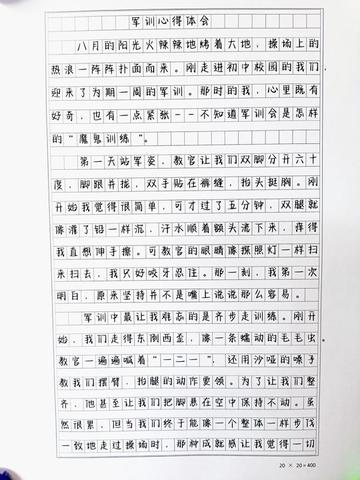 军训心得体会
八月的阳光火辣辣地烤着大地，操场上的
热浪一阵阵扑面而来。刚走进初中校园的我们
迎来了为期一周的军训。那时的我，心里既有
好奇，也有一点紧张--不知道军训会是怎样
的“魔鬼训练”。
第一天站军姿，教官让我们双脚分开六十
度，脚跟并拢，双手贴在裤缝，抬头挺胸。刚
开始我觉得很简单，可才过了五分钟，双腿就
像灌了铅一样沉，汗水顺着额头流下来，痒得
我直想伸手擦。可教官的眼睛像探照灯一样扫
来扫去，我只好咬牙忍住。那一刻，我第一次
明白，原来坚持并不是嘴上说说那么容易。
军训中最让我难忘的是齐步走训练。刚开
始，我们走得东倒西歪，像一条蠕动的毛毛虫。
教官一遍遍喊着“一二一”，还用沙哑的嗓子
教我们摆臂，抬腿的动作要领。为了让我们整
齐，他甚至让我们把脚悬在空中保持不动。虽
然很累，但当我们终于能像一个整体一样步伐
一致地走过操场时，那种成就感让我觉得一切
20 × 20 = 400